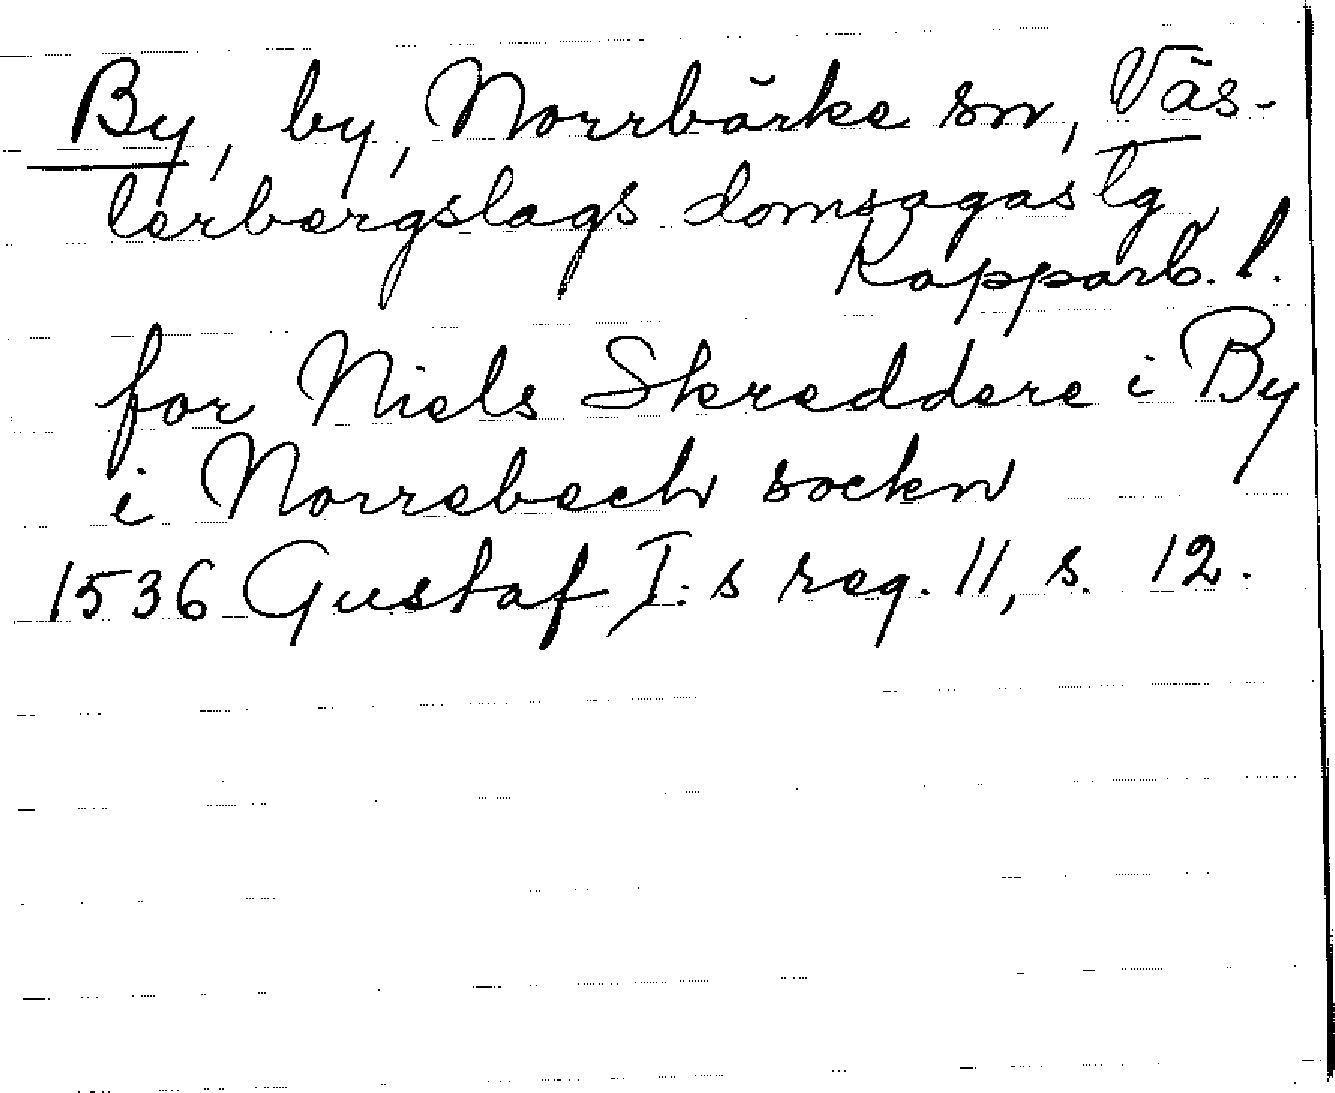 By, by, Norrbärke sn, Väs-
terbergslags domsagas tg
Kopparb. l.
for Niels Skreddere i By
i Norrebech sockn
1536 Gustaf I:s reg. 11, s. 12.